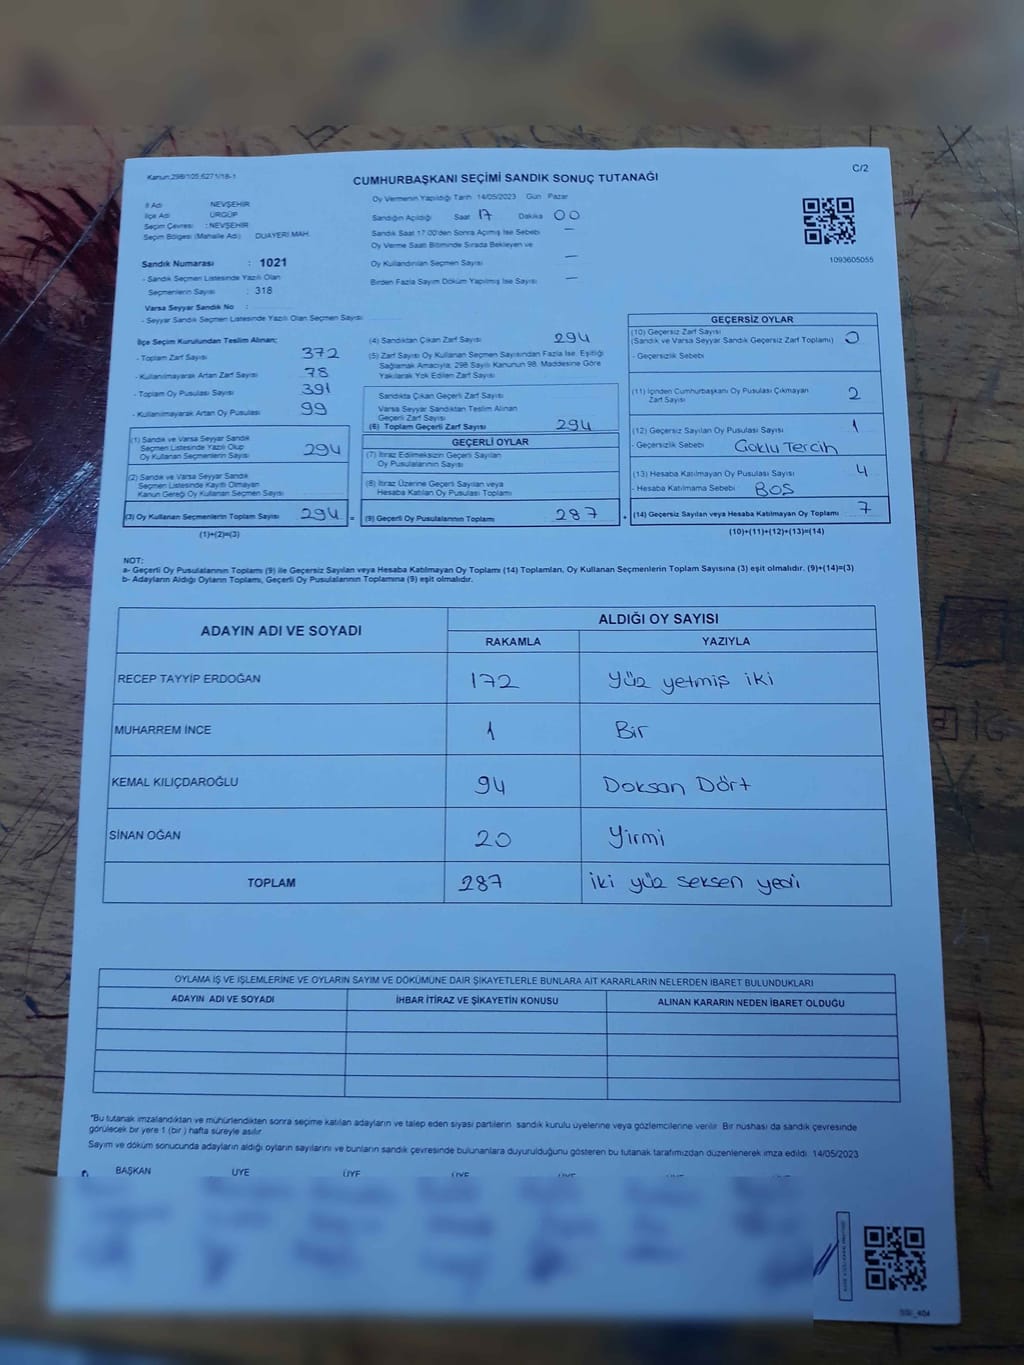 Kanun:298/105,6271/18-1
C/2
CUMHURBAŞKANI SEÇİMİ SANDIK SONUÇ TUTANAĞI
İl Adı NEVŞEHİR
İlçe Adı ÜRGÜP
Seçim Çevresi : NEVŞEHİR
Seçim Bölgesi (Mahalle Adı) DUAYERİ MAH.
Sandık Numarası : 1021
- Sandık Seçmen Listesinde Yazılı Olan
Seçmenlerin Sayısı : 318
Varsa Seyyar Sandık No :
- Seyyar Sandık Seçmen Listesinde Yazılı Olan Seçmen Sayısı
Oy Vermenin Yapıldığı Tarih 14/05/2023 Gün Pazar
Sandığın Açıldığı Saat 17 Dakika 00
Sandık Saat 17.00'den Sonra Açılmış İse Sebebi —
Oy Verme Saati Bitiminde Sırada Bekleyen ve
Oy Kullandırılan Seçmen Sayısı —
Birden Fazla Sayım Döküm Yapılmış İse Sayısı —
1093605055
İlçe Seçim Kurulundan Teslim Alınan;
- Toplam Zarf Sayısı 372
- Kullanılmayarak Artan Zarf Sayısı 78
- Toplam Oy Pusulası Sayısı 391
- Kullanılmayarak Artan Oy Pusulası 99
(1) Sandık ve Varsa Seyyar Sandık
Seçmen Listesinde Yazılı Olup
Oy Kullanan Seçmenlerin Sayısı 294
(2) Sandık ve Varsa Seyyar Sandık
Seçmen Listesinde Kayıtlı Olmayan
Kanun Gereği Oy Kullanan Seçmen Sayısı
(3) Oy Kullanan Seçmenlerin Toplam Sayısı 294 =
(1)+(2)=(3)
(4) Sandıktan Çıkan Zarf Sayısı 294
(5) Zarf Sayısı Oy Kullanan Seçmen Sayısından Fazla İse, Eşitliği
Sağlamak Amacıyla, 298 Sayılı Kanunun 98. Maddesine Göre
Yakılarak Yok Edilen Zarf Sayısı
Sandıkta Çıkan Geçerli Zarf Sayısı
Varsa Seyyar Sandıktan Teslim Alınan
Geçerli Zarf Sayısı
(6) Toplam Geçerli Zarf Sayısı 294
GEÇERLİ OYLAR
(7) İtiraz Edilmeksizin Geçerli Sayılan
Oy Pusulalarının Sayısı
(8) İtiraz Üzerine Geçerli Sayılan veya
Hesaba Katılan Oy Pusulası Toplamı
(9) Geçerli Oy Pusulalarının Toplamı 287 +
GEÇERSİZ OYLAR
(10) Geçersiz Zarf Sayısı
(Sandık ve Varsa Seyyar Sandık Geçersiz Zarf Toplamı) 0
- Geçersizlik Sebebi
(11) İçinden Cumhurbaşkanı Oy Pusulası Çıkmayan
Zarf Sayısı 2
(12) Geçersiz Sayılan Oy Pusulası Sayısı 1
- Geçersizlik Sebebi Çoklu Tercih
(13) Hesaba Katılmayan Oy Pusulası Sayısı 4
- Hesaba Katılmama Sebebi BOŞ
(14) Geçersiz Sayılan veya Hesaba Katılmayan Oy Toplamı 7
(10)+(11)+(12)+(13)=(14)
NOT:
a- Geçerli Oy Pusulalarının Toplamı (9) ile Geçersiz Sayılan veya Hesaba Katılmayan Oy Toplamı (14) Toplamları, Oy Kullanan Seçmenlerin Toplam Sayısına (3) eşit olmalıdır. (9)+(14)=(3)
b- Adayların Aldığı Oyların Toplamı, Geçerli Oy Pusulalarının Toplamına (9) eşit olmalıdır.
ADAYIN ADI VE SOYADI ALDIĞI OY SAYISI
RAKAMLA YAZIYLA
RECEP TAYYİP ERDOĞAN 172 Yüz yetmiş iki
MUHARREM İNCE 1 Bir
KEMAL KILIÇDAROĞLU 94 Doksan Dört
SİNAN OĞAN 20 Yirmi
TOPLAM 287 İki yüz seksen yedi
OYLAMA İŞ VE İŞLEMLERİNE VE OYLARIN SAYIM VE DÖKÜMÜNE DAİR ŞİKAYETLERLE BUNLARA AİT KARARLARIN NELERDEN İBARET BULUNDUKLARI
ADAYIN ADI VE SOYADI İHBAR İTİRAZ VE ŞİKAYETİN KONUSU ALINAN KARARIN NEDEN İBARET OLDUĞU
"Bu tutanak imzalandıktan ve mühürlendikten sonra seçime katılan adayların ve talep eden siyasi partilerin sandık kurulu üyelerine veya gözlemcilerine verilir. Bir nüshası da sandık çevresinde
görülecek bir yere 1 (bir) hafta süreyle asılır.
Sayım ve döküm sonucunda adayların aldığı oyların sayılarını ve bunların sandık çevresinde bulunanlara duyurulduğunu gösteren bu tutanak tarafımızdan düzenlenerek imza edildi. 14/05/2023
BAŞKAN ÜYE ÜYE ÜYE ÜYE ÜYE ÜYE